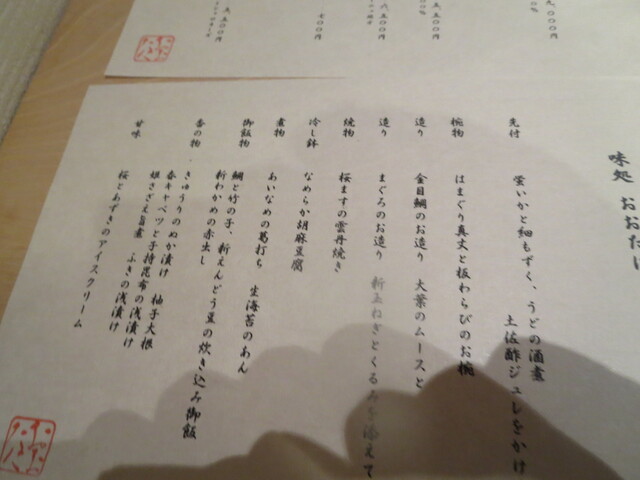 味処 おおたに
先付
蛍いかと細もずく、うどの酒煮
土佐酢ジュレをかけ
椀物
はまぐり真丈と板わらびのお椀
造り
金目鯛のお造り 大葉のムースと
造り
まぐろのお造り 新玉ねぎとくるみを添えて
焼物
桜ますの雲丹焼き
冷し鉢
なめらか胡麻豆腐
煮物
あいなめの葛打ち 生海苔のあん
御飯物
鯛と竹の子、新えんどう豆の炊き込み御飯
新わかめの赤出し
香の物
きゅうりのぬか漬け 柚子大根
春キャベツと子持昆布の浅漬け
姫さざえ旨煮 ふきの浅漬け
甘味
桜とあずきのアイスクリーム